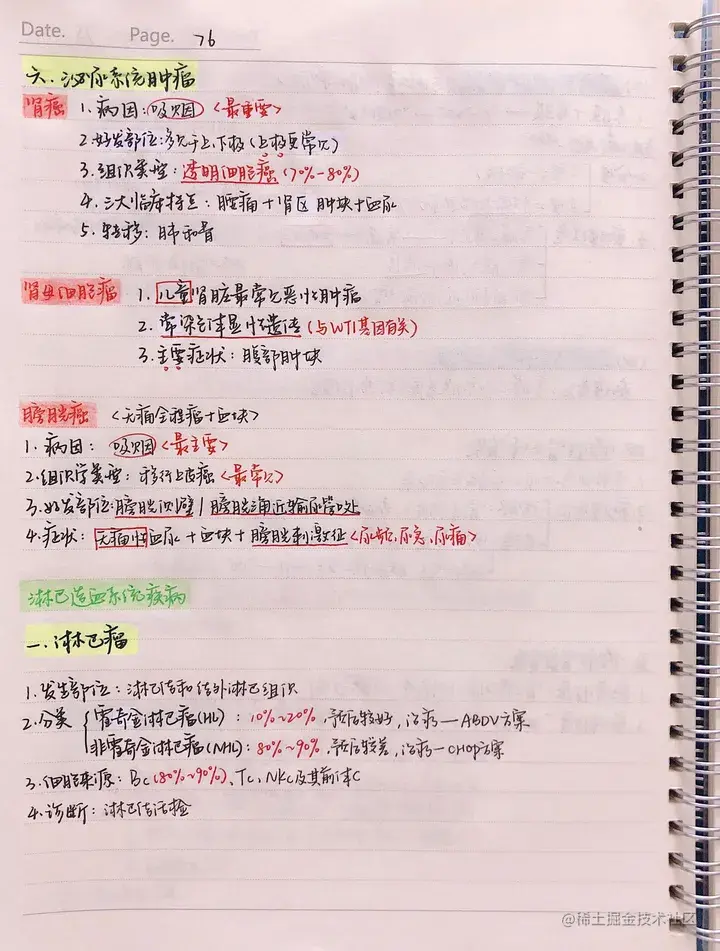 Date. Page. 76
六. 泌尿系统肿瘤
肾癌 1. 病因: 吸烟 <最重要>
2. 好发部位: 多见于上、下极 (上极更常见)
3. 组织类型: 透明细胞癌 (70%-80%)
4. 三大临床特点: 腰痛+肾区肿块+血尿
5. 转移: 肺和骨
肾母细胞瘤 1. 儿童肾脏最常见恶性肿瘤
2. 常染色体显性遗传 (与WT1基因有关)
3. 主要症状: 腹部肿块
膀胱癌 <无痛全程+血块>
1. 病因: 吸烟 <最主要>
2. 组织学类型: 移行上皮癌 <最常见>
3. 好发部位: 膀胱侧壁/膀胱三角近输尿管口处
4. 症状: 无痛性血尿+血块+膀胱刺激征 <尿频, 尿急, 尿痛>
淋巴造血系统疾病
一. 淋巴瘤
1. 发生部位: 淋巴结和结外淋巴组织
2. 分类 { 霍奇金淋巴瘤(HL): 10%~20%, 预后较好, 治疗—ABDV方案
非霍奇金淋巴瘤(NHL): 80%~90%, 预后较差, 治疗—CHOP方案
3. 细胞来源: Bc(80%~90%)、Tc、NKc及其前体C
4. 诊断: 淋巴结活检
@稀土掘金技术社区